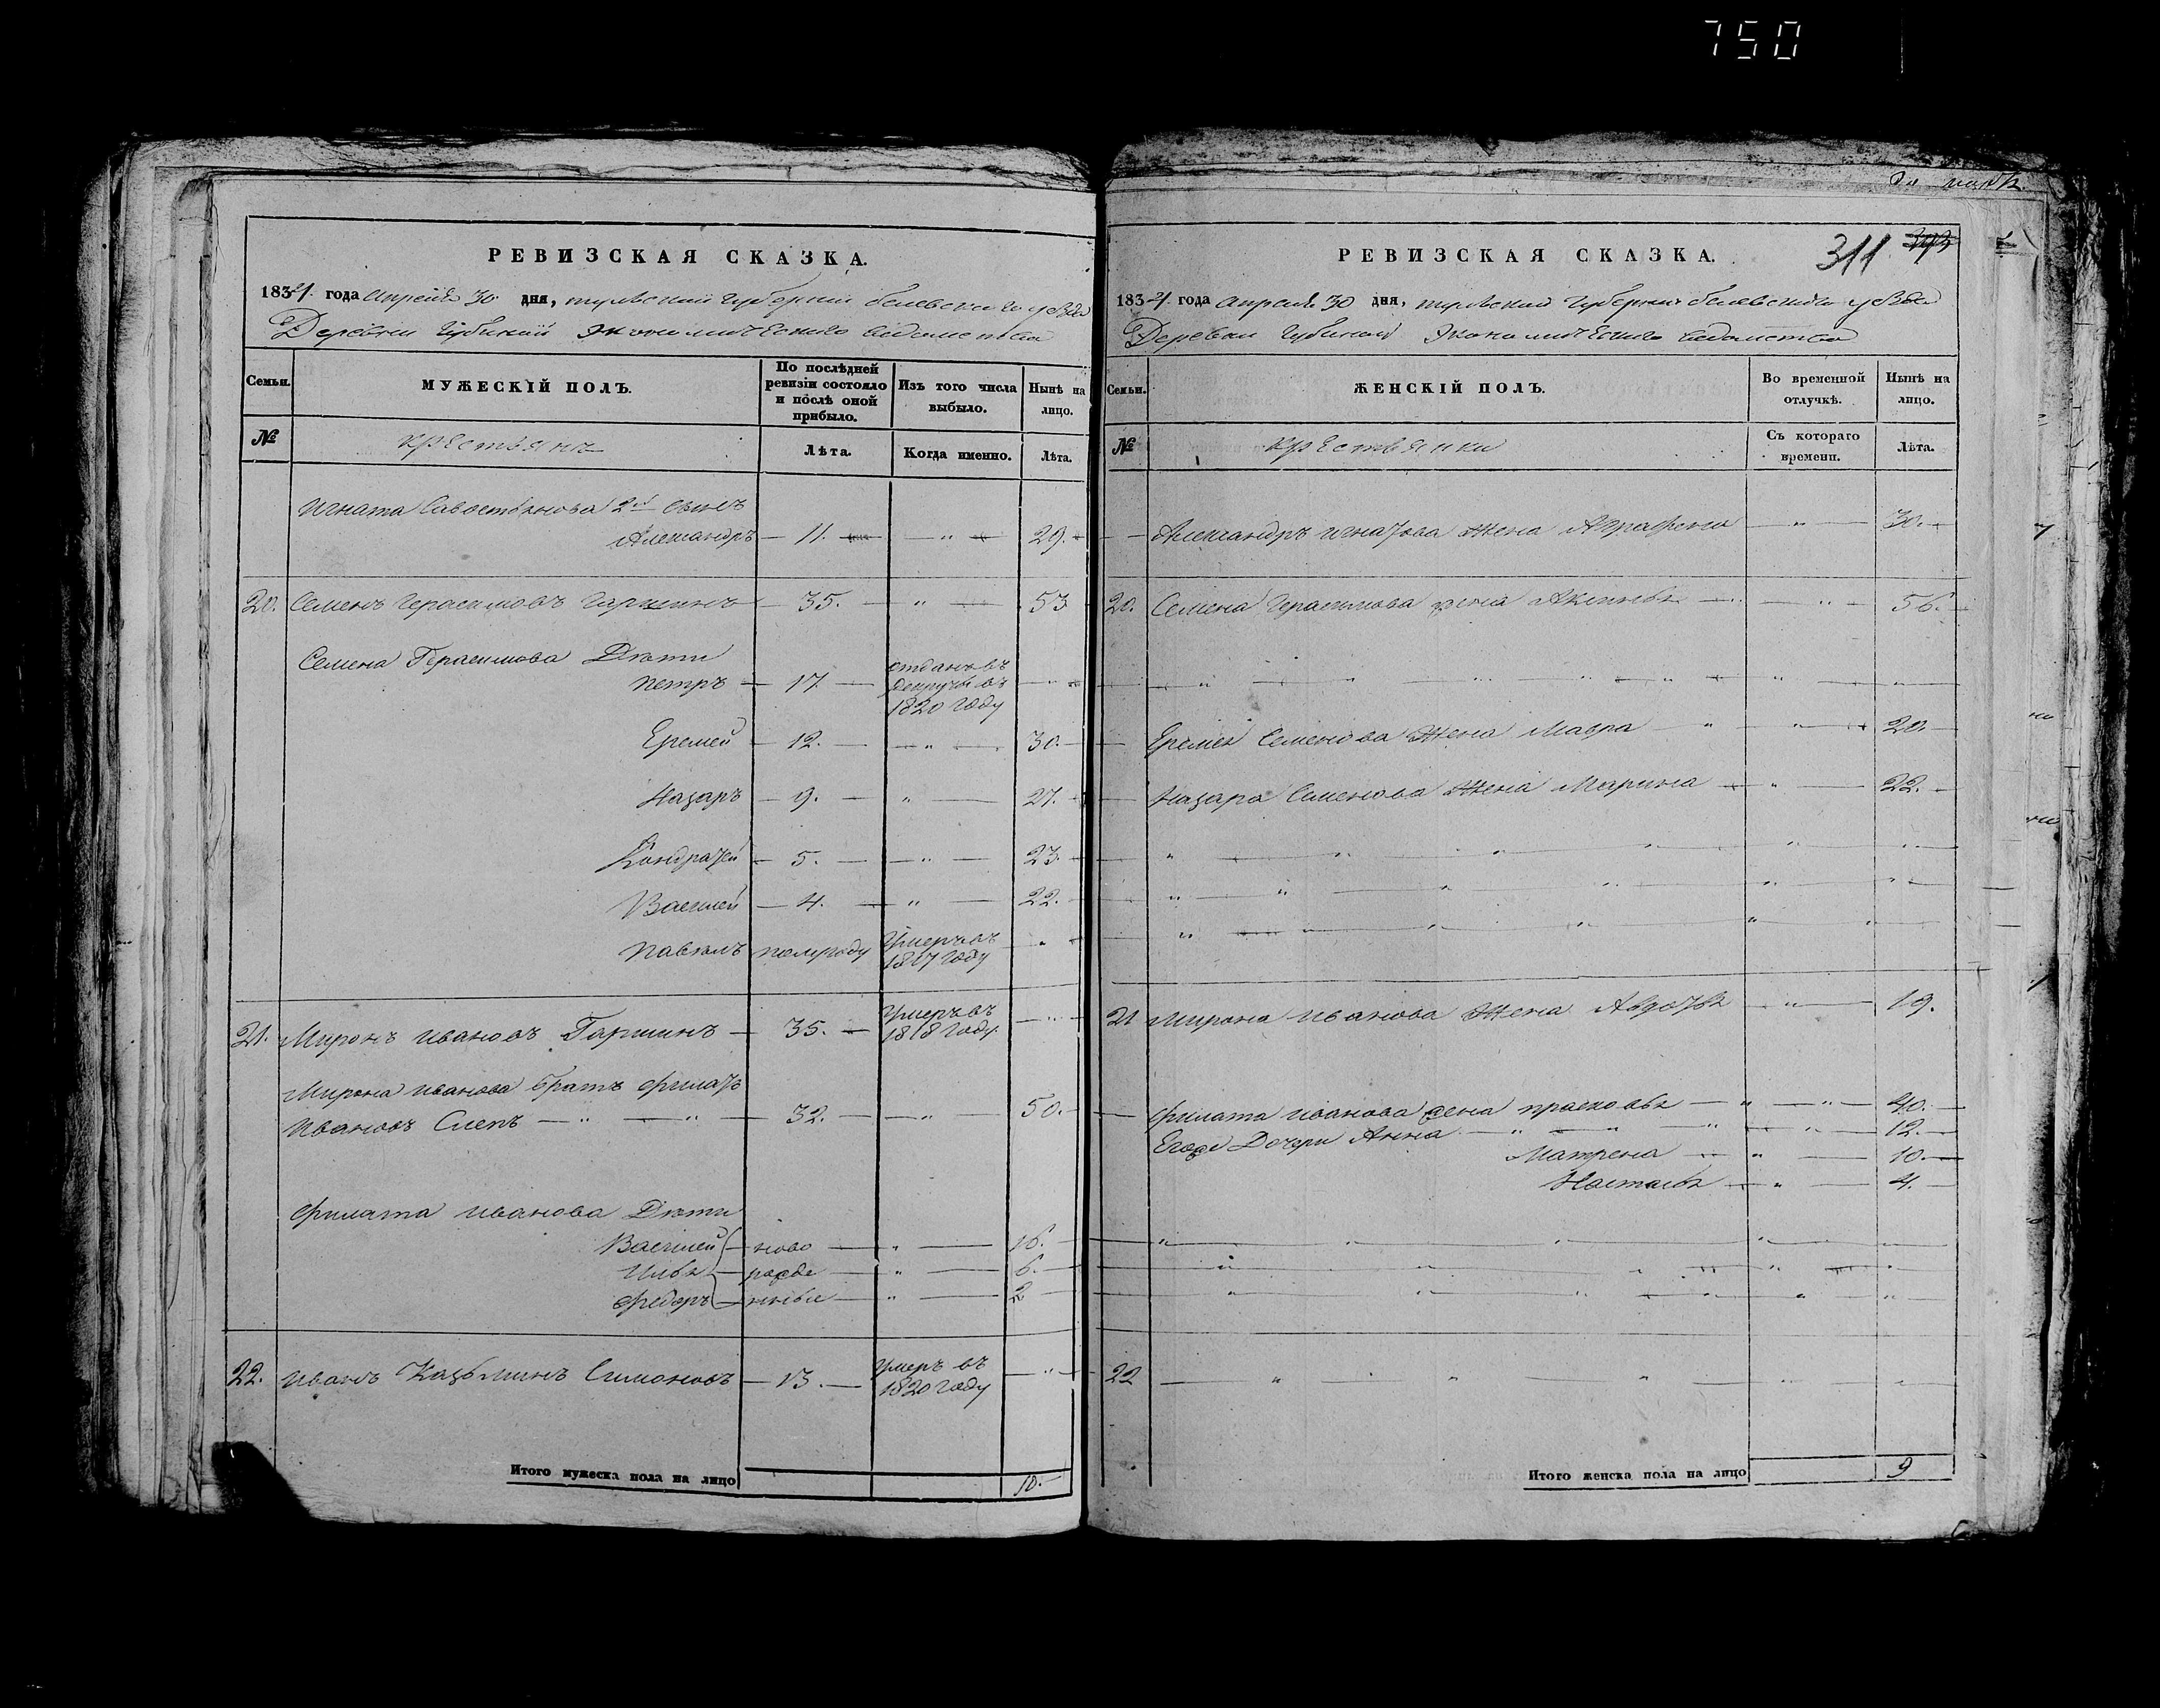 750
РЕВИЗСКАЯ СКАЗКА.
1834. года Апреля 30. дня, тульской губернии белевскаго уезда
Деревни Губиной Экономическаго ведомства
Семьи.
МУЖЕСКІЙ ПОЛЪ.
По послѣдней ревизіи состояло и послѣ оной прибыло.
Изъ того числа выбыло.
Нынѣ на лицо.
№
крестьянъ
Лѣта.
Когда именно.
Лѣта.
Игната Савостьянова 2й сынъ
Александръ — 11. — " — 29.
20. Семенъ Герасимовъ Гаршинъ — 35. — " — 53
Семена Герасимова Дѣти
Петръ — 17 — отданъ въ рекруты въ 1820 году — "
Еремей — 12. — " — 30.
Назаръ — 9. — " — 27.
Кондратей — 5. — " — 23.
Василей — 4. — " — 22.
Павелъ полугоду Умеръ въ 1817 году "
21. Миронъ Ивановъ Гаршинъ — 35. — Умеръ въ 1818 году — "
Мирона Иванова братъ Филатъ
Ивановъ Слепъ — " — " — 32. — " — 50.
Филата Иванова Дѣти
Василей — ново — " — 16.
Илья — рожде — " — 6.
Федоръ — нные — " — 2
22. Иванъ Казьминъ Симоновъ — 13. — Умеръ въ 1820 году — "
Итого мужеска пола на лицо 10.
311
РЕВИЗСКАЯ СКАЗКА.
1834. года Апреля 30 дня, тульской губернии белевскаго уезда
Деревни Губиной Экономическаго ведомства
Семьи.
ЖЕНСКІЙ ПОЛЪ.
Во временной отлучкѣ.
Нынѣ на лицо.
№
крестьянки
Съ котораго времени.
Лѣта.
Александръ Игнатова Жена Аграфена — " — 30.
20. Семена Герасимова жена — " — 56.
Еремея Семенова Жена Мавра — " — " — 20.
Назара Семенова Жена Марина — " — 22.
21 Мирона Иванова Жена Авдотья — " — 19.
Филата Иванова жена Прасковья — " — " — 40.
Егоже Дочери Анна — " — 12.
Матрена — " — 10.
Настасья — " — 4.
22
Итого женска пола на лицо 9